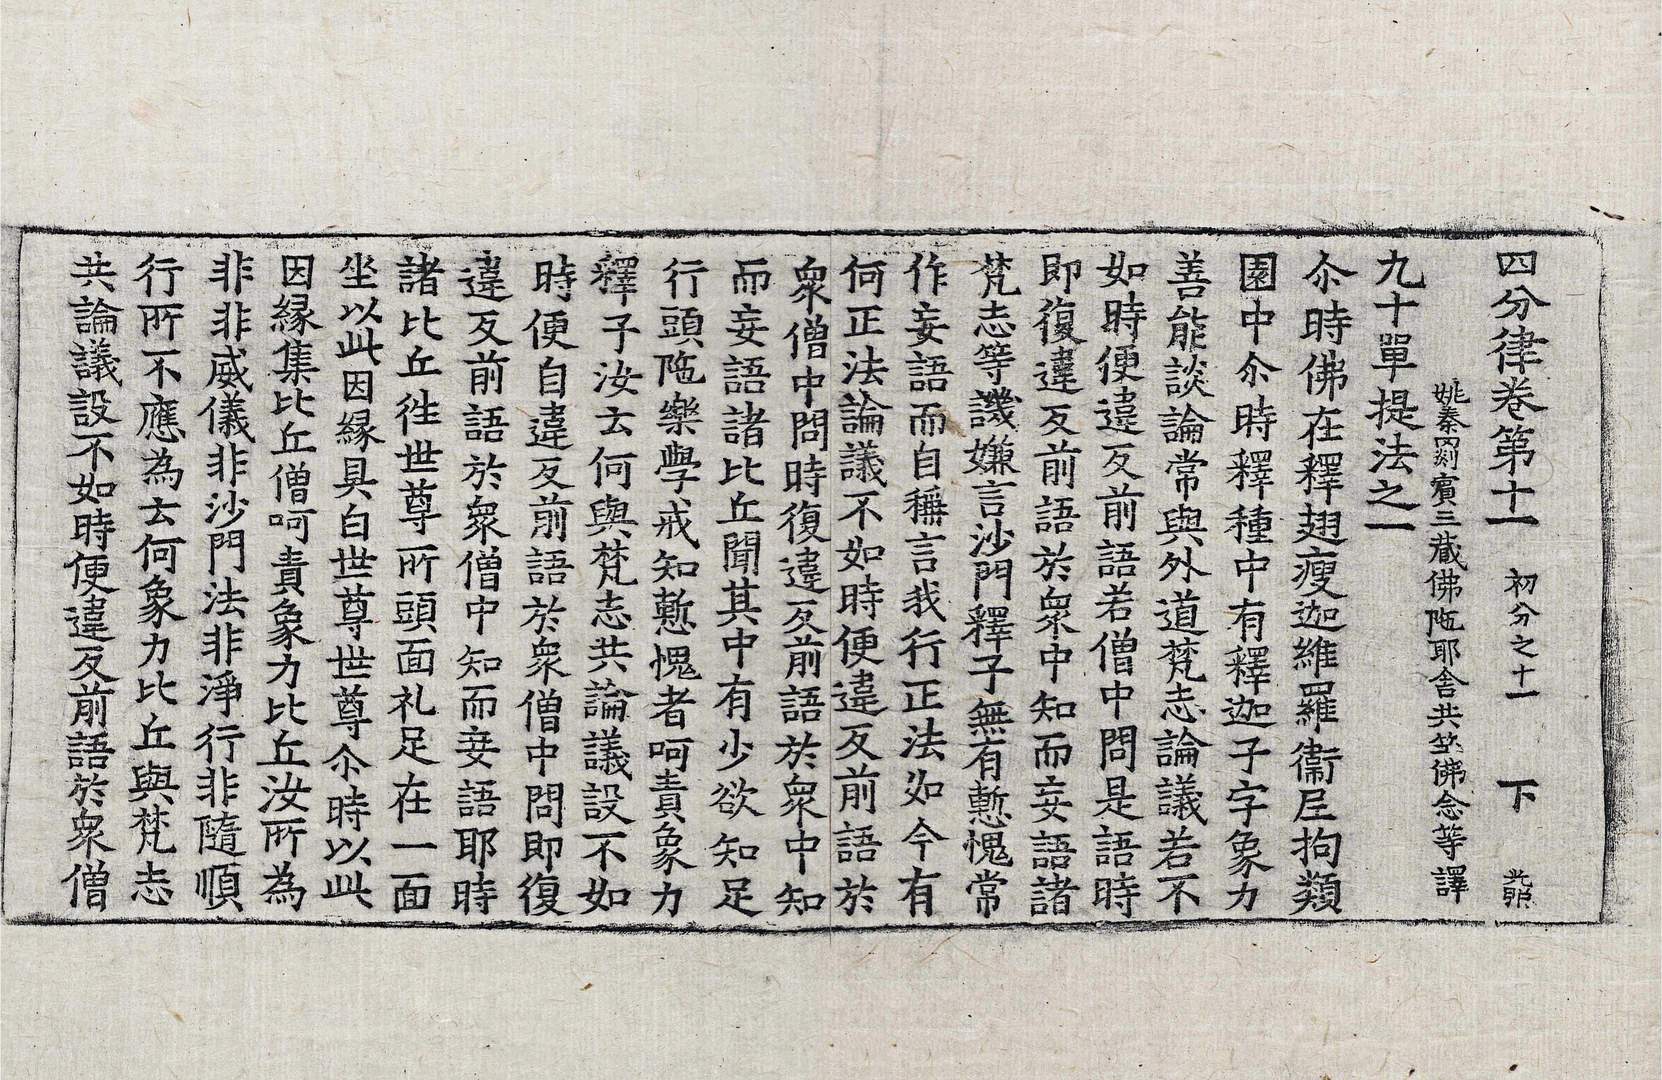 四分律卷第十一 初分之十一 下
姚秦罽賓三藏佛陁耶舍共竺佛念等譯
九十單提法之一
尒時佛在釋翅瘦迦維羅衞尼拘類
園中尒時釋種中有釋迦子字象力
善能談論常與外道梵志論議若不
如時便違反前語若僧中問是語時
即復違反前語於衆中知而妄語諸
梵志等譏嫌言沙門釋子無有慙愧常
作妄語而自稱言我行正法如今有
何正法論議不如時便違反前語於
衆僧中問時復違反前語於衆中知
而妄語諸比丘聞其中有少欲知足
行頭陁樂學戒知慙愧者呵責象力
釋子汝云何與梵志共論議設不如
時便自違反前語於衆僧中問即復
違反前語於衆僧中知而妄語耶時
諸比丘往世尊所頭面礼足在一面
坐以此因緣具白世尊世尊尒時以此
因緣集比丘僧呵責象力比丘汝所為
非非威儀非沙門法非淨行非隨順
行所不應為云何象力比丘與梵志
共論議設不如時便違反前語於衆僧